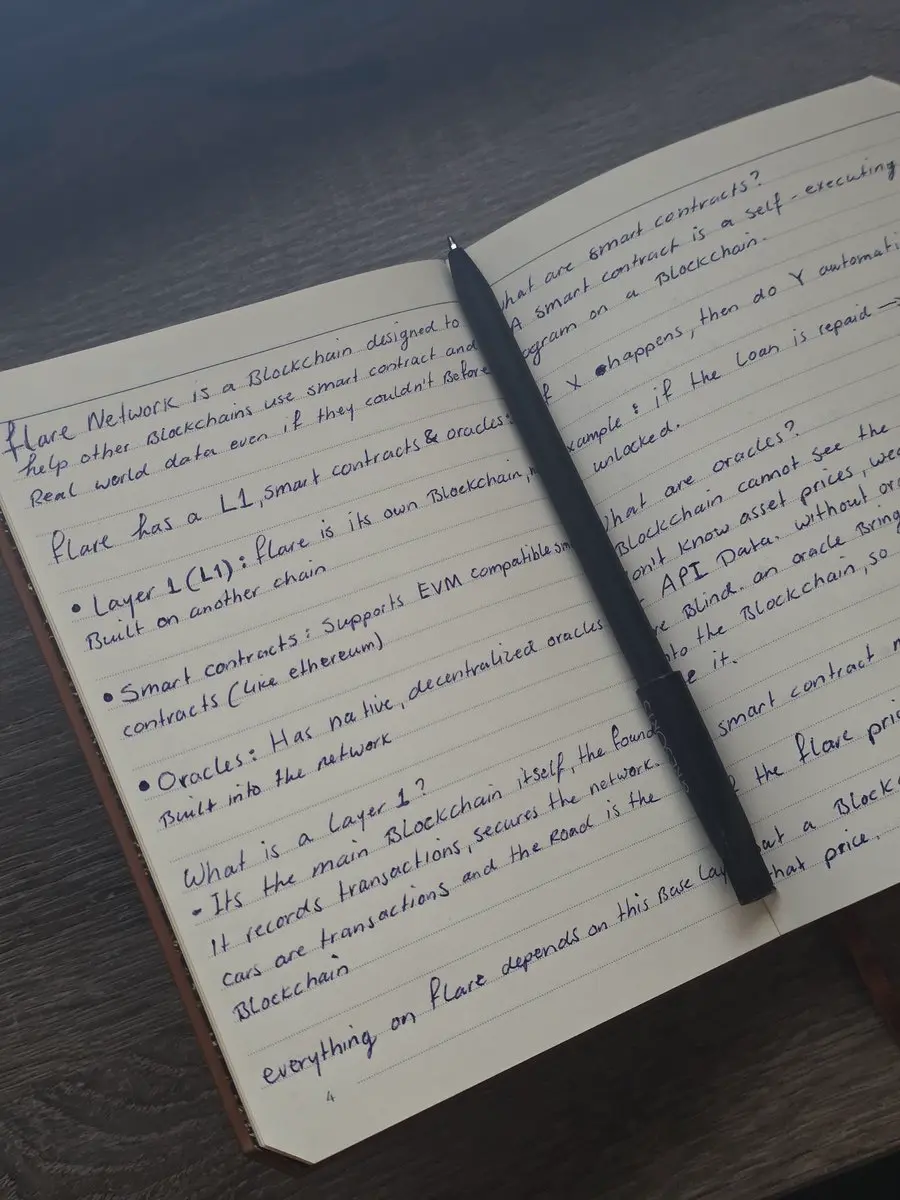 flare Network is a Blockchain designed to
help other Blockchains use smart contract and
Real world data even if they couldn't Before
flare has a L1, smart contracts & oracles:
• Layer 1 (L1): flare is its own Blockchain,
Built on another chain
• Smart contracts: Supports EVM compatible
contracts (like ethereum)
• Oracles: Has native, decentralized oracles
Built into the network
What is a Layer 1?
- Its the main Blockchain itself, the found
It records transactions, secures the network.
cars are transactions and the Road is the
Blockchain
everything on flare depends on this Base Lay
4
hat are smart contracts?
A smart contract is a self-executing
ogram on a Blockchain.
f X happens, then do Y automati
xample: if the Loan is repaid →
unlocked.
hat are oracles?
Blockchain cannot see the
on't know asset prices, wea
API Data. without or
re Blind. an oracle Bring
to the Blockchain, so
e it.
smart contract
the flare pri
at a Block
that price.